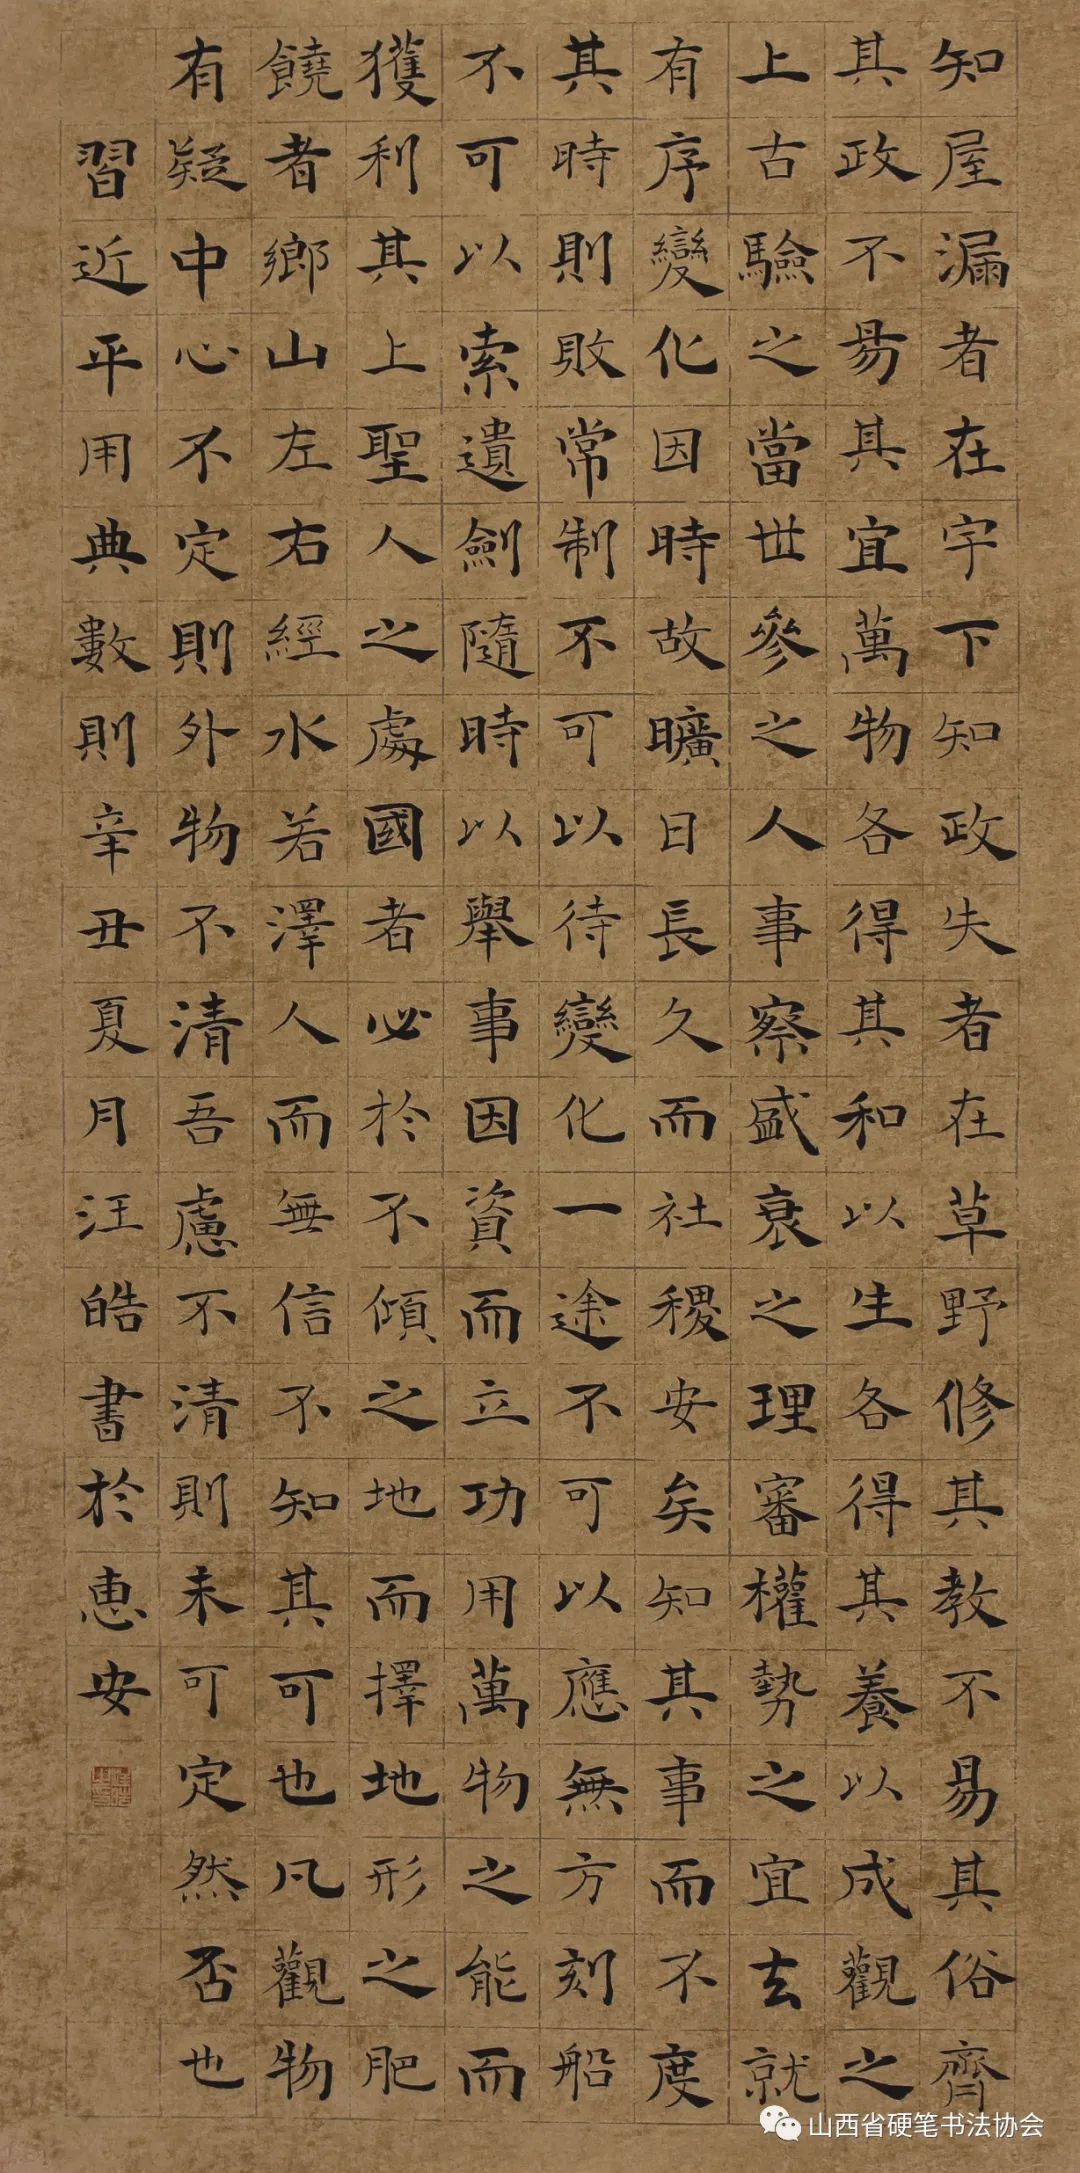 知屋漏者在宇下知政失者在草野修其教不易其俗齊
其政不易其宜萬物各得其和以生各得其養以成觀之
上古驗之當世參之人事察盛衰之理審權勢之宜去就
有序變化因時故曠日長久而社稷安矣知其事而不度
其時則敗常制不可以待變化一途不可以應無方刻船
不可以索遺劍隨時以舉事因資而立功用萬物之能而
獲利其上聖人之處國者必於不傾之地而擇地形之肥
饒者鄉山左右經水若澤人而無信不知其可也凡觀物
有疑中心不定則外物不清吾慮不清則未可定然否也
習近平用典數則辛丑夏月汪皓書於惠安
山西省硬笔书法协会